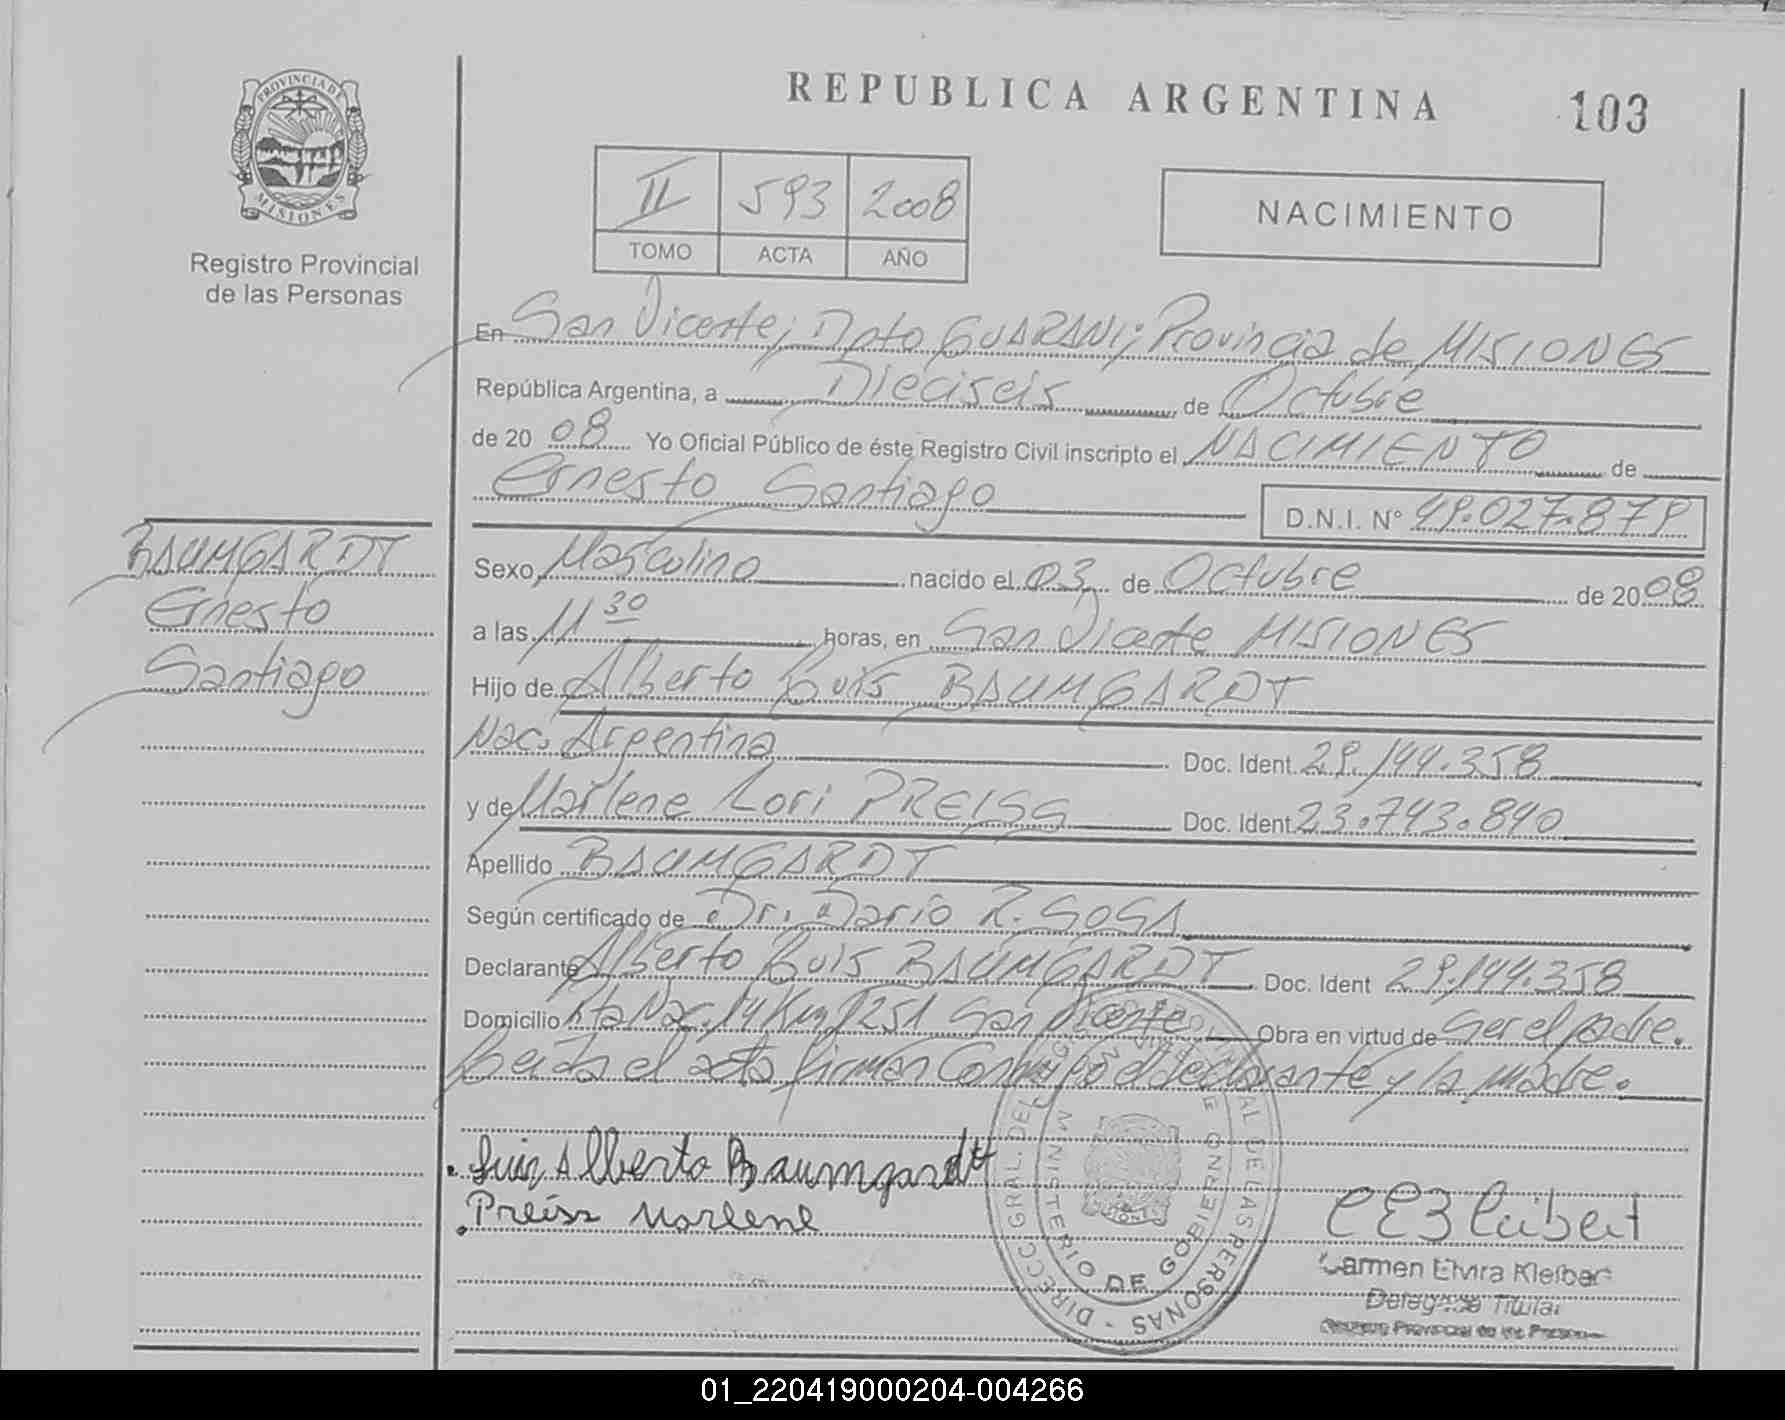 REPUBLICA ARGENTINA
103
PROVINCIA DE
MISIONES
Registro Provincial
de las Personas
II 593 2008
TOMO ACTA AÑO
NACIMIENTO
En San Vicente; Dpto GUARANI; Provincia de MISIONES
República Argentina, a Dieciseis de Octubre
de 20 08 Yo Oficial Público de éste Registro Civil inscripto el NACIMIENTO de
Ernesto Santiago D.N.I. N° 49.027.879
BAUMGARDT
Ernesto
Santiago
Sexo Masculino nacido el 03 de Octubre de 20 08
a las 11 30 horas, en San Vicente MISIONES
Hijo de Alberto Luis BAUMGARDT
Nac. Argentina Doc. Ident. 29.144.358
y de Marlene Lori PREISS Doc. Ident. 23.743.840
Apellido BAUMGARDT
Según certificado de Dr. Dario R. SOSA
Declarante Alberto Luis BAUMGARDT Doc. Ident 29.144.358
Domicilio Rta Nac. 14 Km 1251 San Vicente Obra en virtud de Ser el padre.
Leida el acta firman Conmigo el declarante y la madre.
Luis Alberto Baumgardt
Preiss Marlene
DIRECC GRAL. DEL DE LAS PERSONAS
MINISTERIO DE GOBIERNO
Carmen Elvira Kleiber
Delegada Titular
Registro Provincial de las Personas
01_220419000204-004266